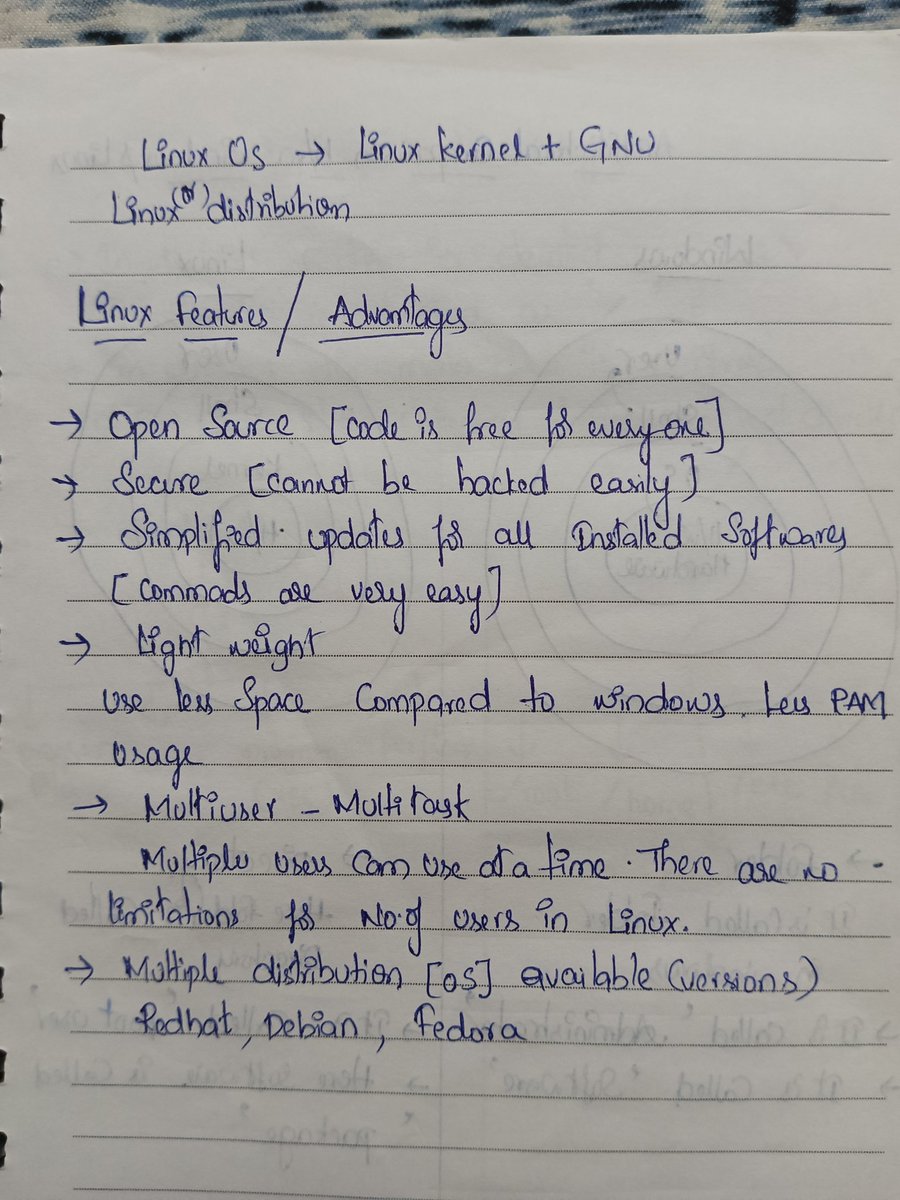 Linux Os → Linux kernel + GNU
Linux (or) distribution
Linux features / Advantages
→ Open Source [code is free for everyone]
→ Secure [cannot be hacked easily]
→ Simplified updates for all Installed Softwares
[commads are very easy]
→ Light weight
Use less Space Compared to windows. Less RAM
usage
→ Multiuser - Multitask
Multiple users can use at a time. There are no
limitations for No. of users in Linux.
→ Multiple distribution [OS] available (versions)
Redhat, Debian, Fedora